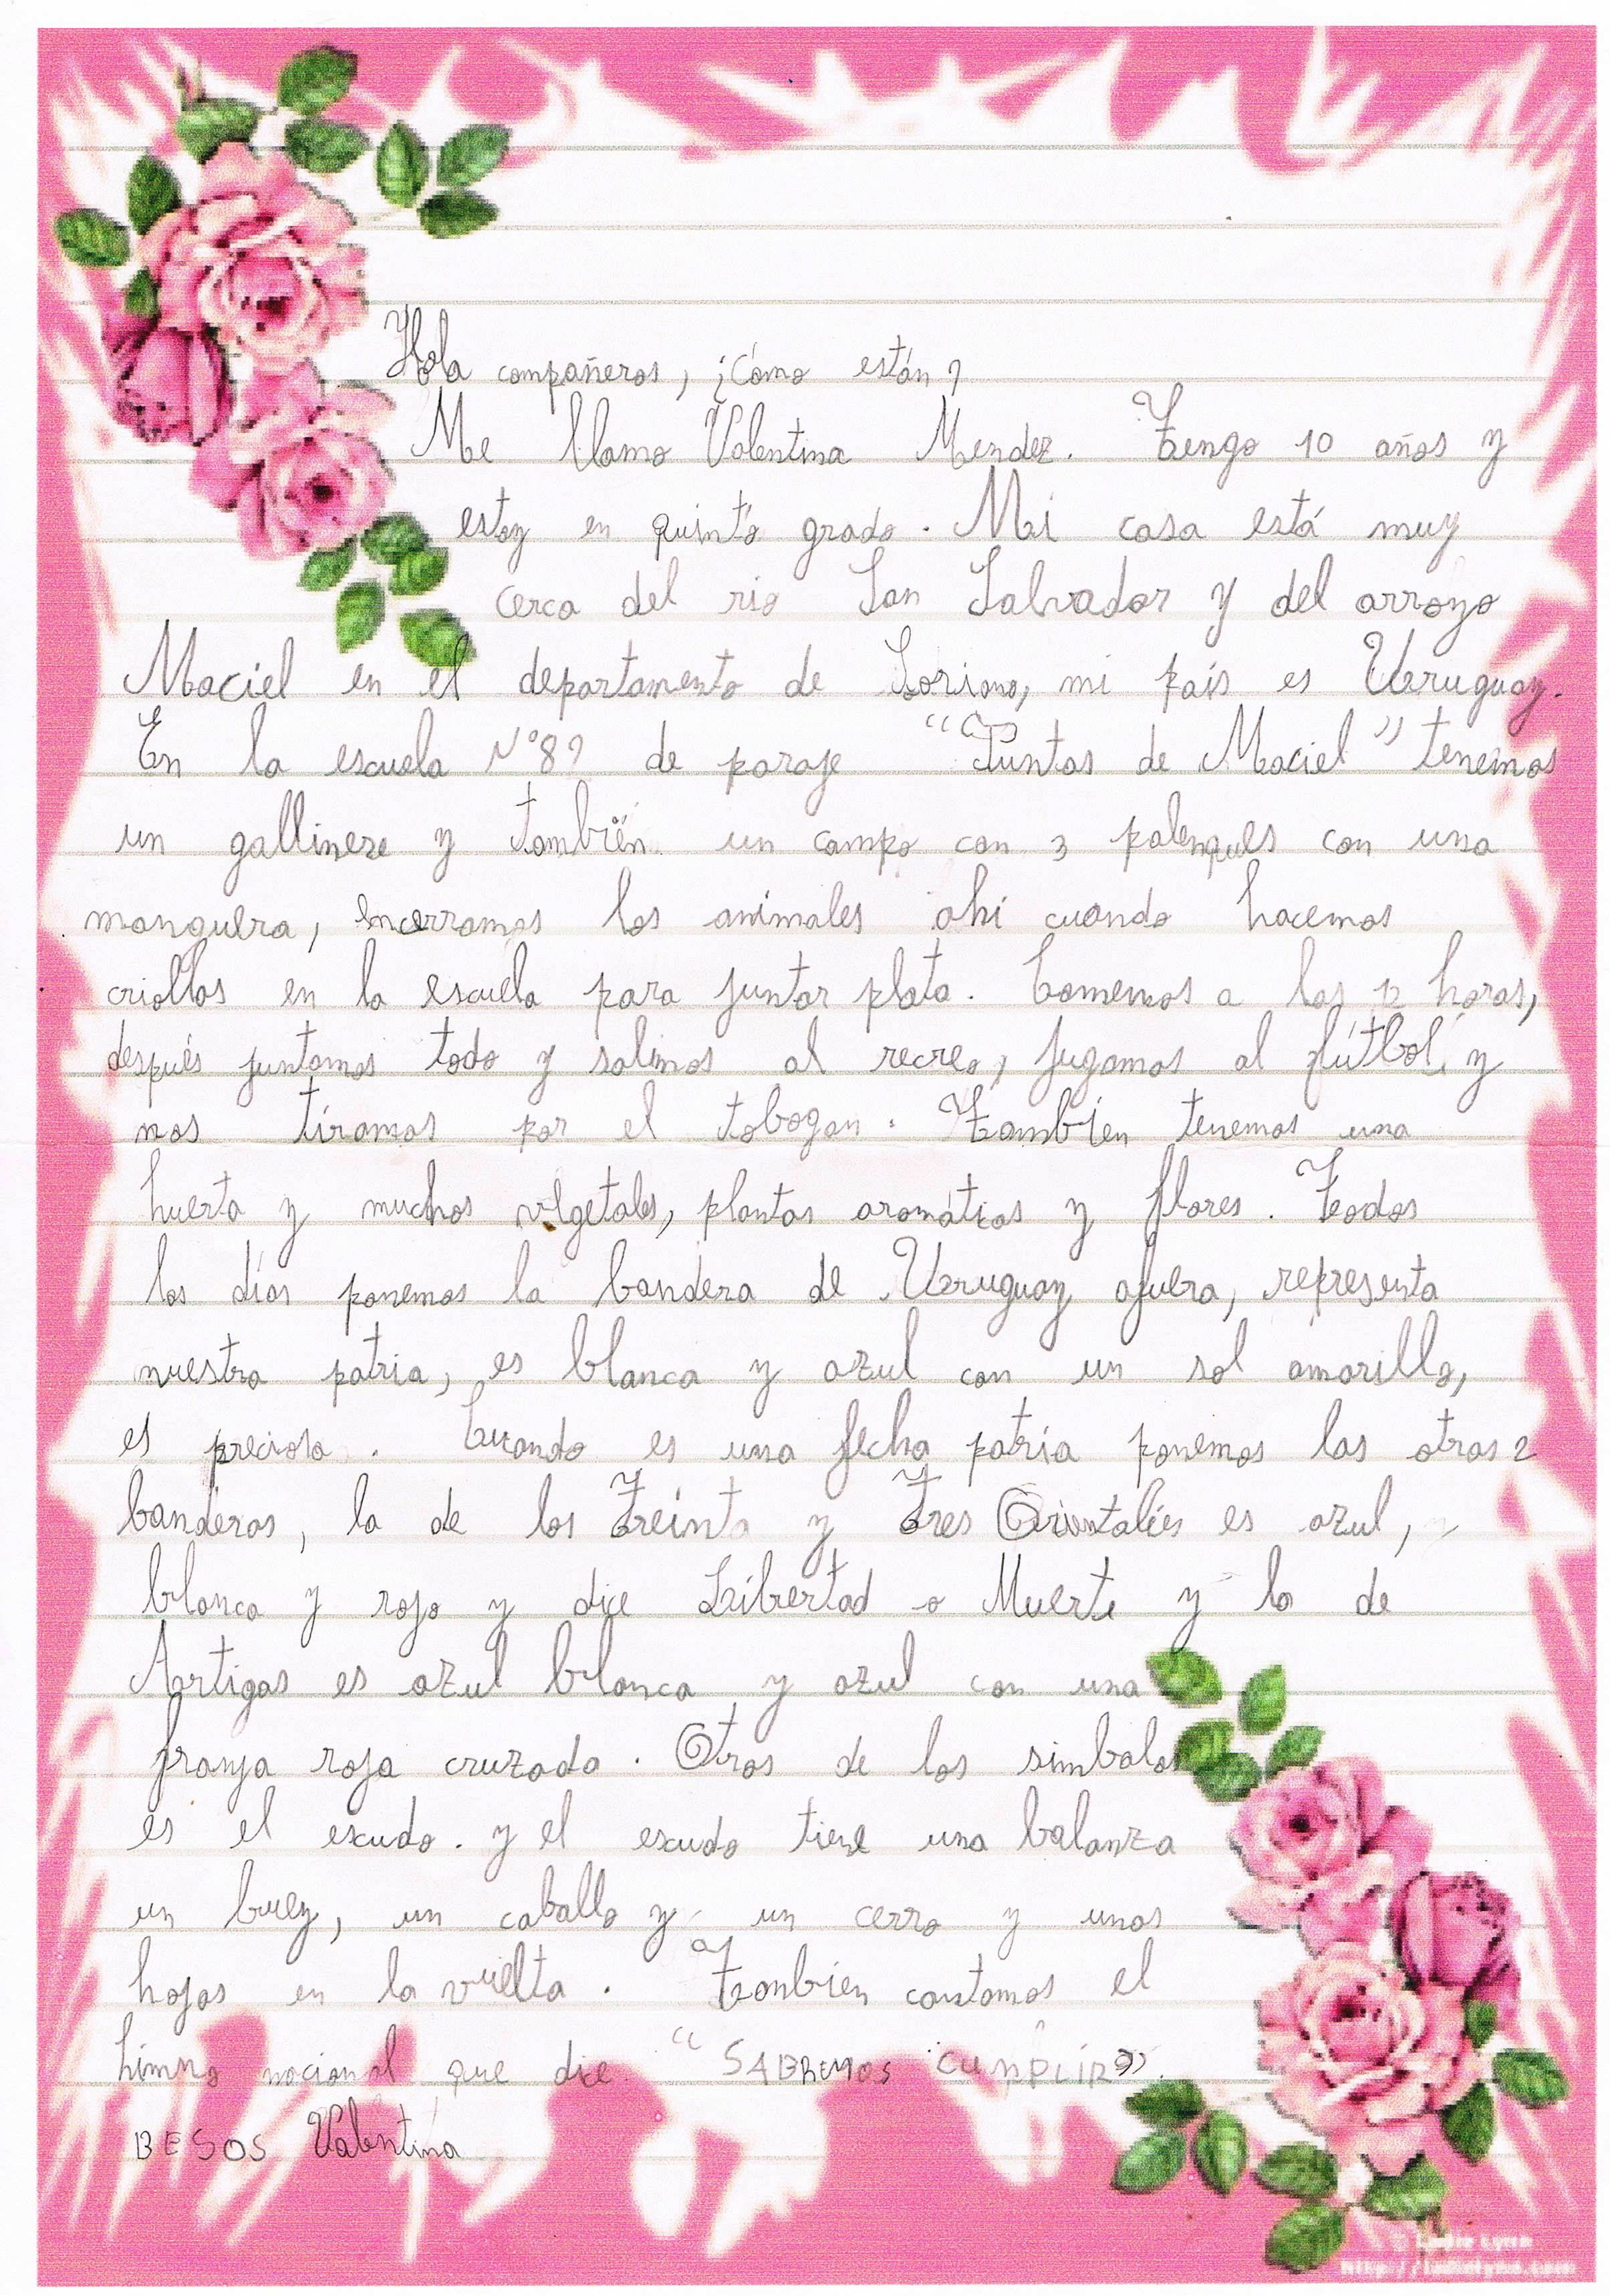 Hola compañeros, ¿Cómo están?
Me llamo Valentina Mendez. Tengo 10 años y
estoy en quinto grado. Mi casa está muy
cerca del rio San Salvador y del arroyo
Maciel en el departamento de Soriano, mi país es Uruguay.
En la escuela N°89 de paraje "Puntas de Maciel" tenemos
un gallinero y también un campo con 3 palenques con una
manguera, encerramos los animales ahi cuando hacemos
criollas en la escuela para juntar plata. Comemos a las 12 horas,
después juntamos todo y salimos al recreo, jugamos al fútbol y
nos tiramos por el tobogan. También tenemos una
huerta y muchos vegetales, plantas aromáticas y flores. Todos
los días ponemos la bandera de Uruguay afuera, representa
nuestra patria, es blanca y azul con un sol amarillo,
es preciosa. Cuando es una fecha patria ponemos las otras 2
banderas, la de los Treinta y Tres Orientales es azul,
blanca y roja y dice Libertad o Muerte y la de
Artigas es azul blanca y azul con una
franja roja cruzada. Otros de los simbolos
es el escudo. y el escudo tiene una balanza
un buey, un caballo y un cerro y unas
hojas en la vuelta. Tanbien cantamos el
himno nacional que dice "SABREMOS CUMPLIR".
BESOS Valentina